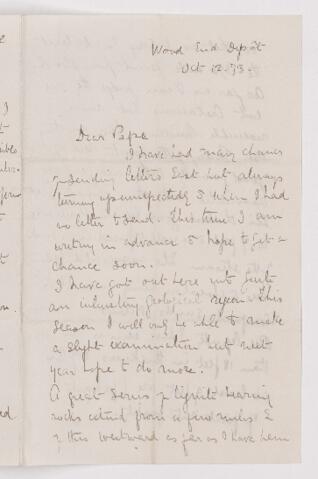 Wood End Depôt
Oct 12. 73.
Dear Papa
I have had many chances
of sending letters East but always
turning up unexpectedly & when I had
no letter to send. This time I am
writing in advance & hope to get a
chance soon.
I have got out here into quite
an interesting geological region. This
season I will only be able to make
a slight examination but next
year hope to do more.
A great series of lignite bearing
rocks extend from a few miles E
of this westward as far as I have been